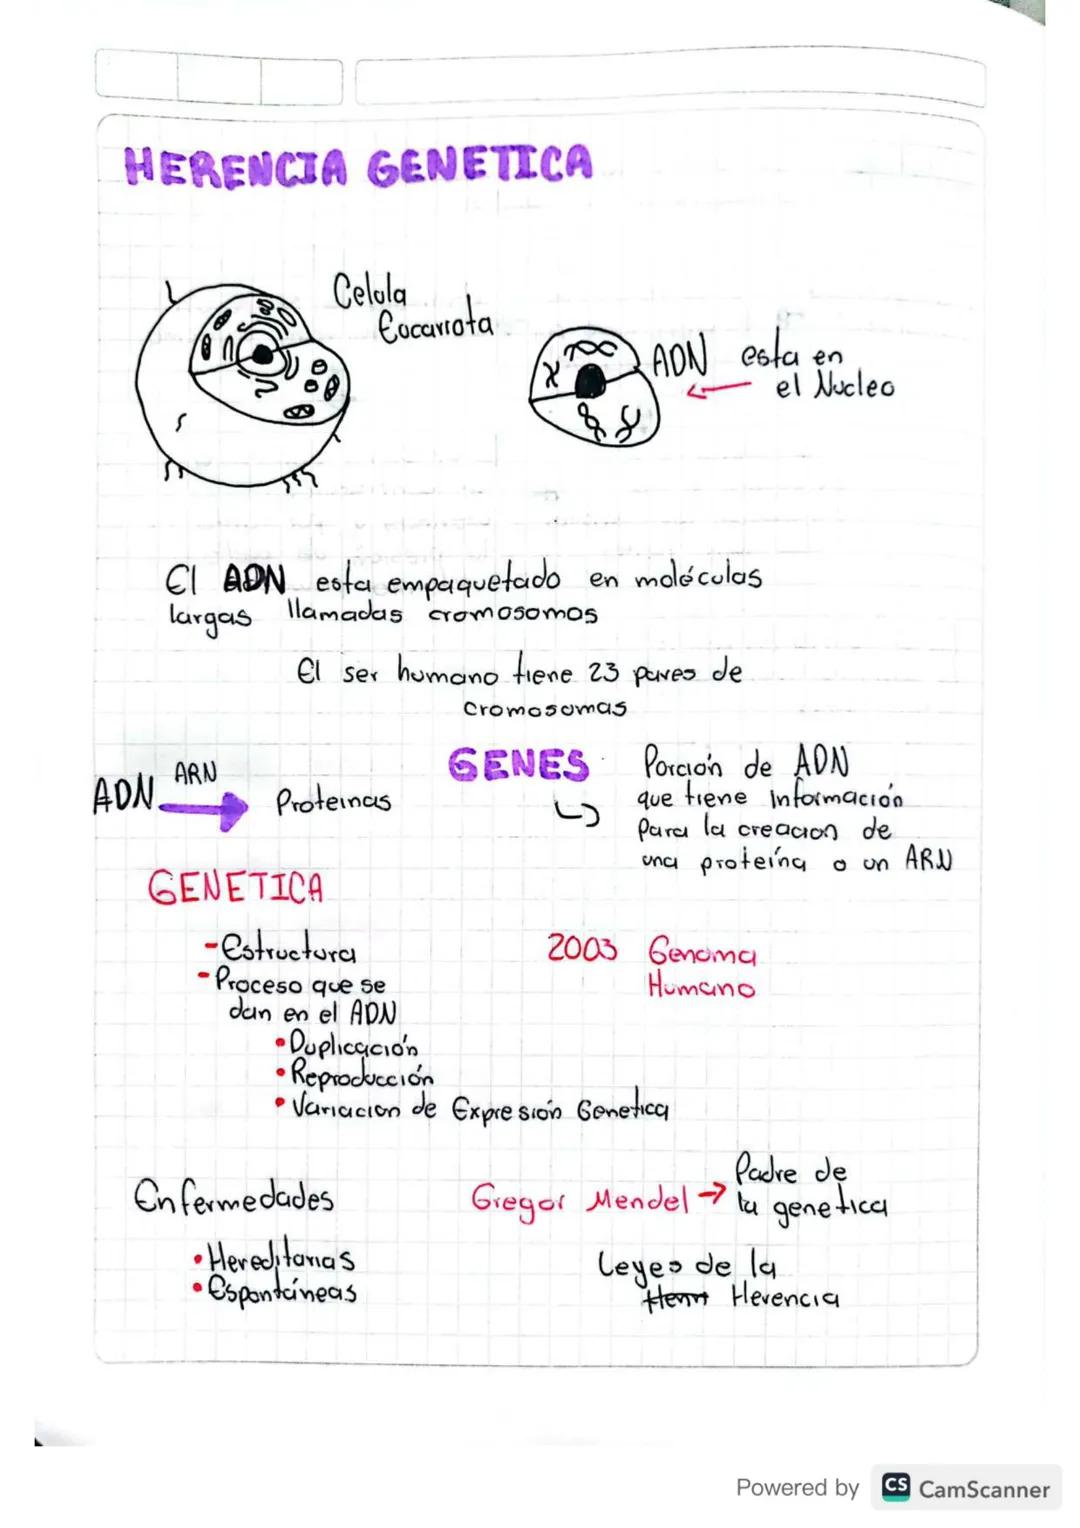 HERENCIA GENETICA
Celula
Eucariota
ADN esta en
el Nucleo
El ADN esta empaquetado en moléculas
largas llamadas cromosomas
El ser humano tiene 23 pares de
cromosomas
ADN ARN Proteinas
GENES
Porción de ADN
que tiene información
Para la creacion de
una proteína o un ARN
GENETICA
-Estructura
-Proceso que se
dan en el ADN
•Duplicación
•Reproducción
•Variacion de Expresión Genetica
2003 Genoma
Humano
Enfermedades
•Hereditarias
•Espontáneas
Gregor Mendel → Padre de
la genetica
Leyes de la
Herencia
Powered by CS CamScanner